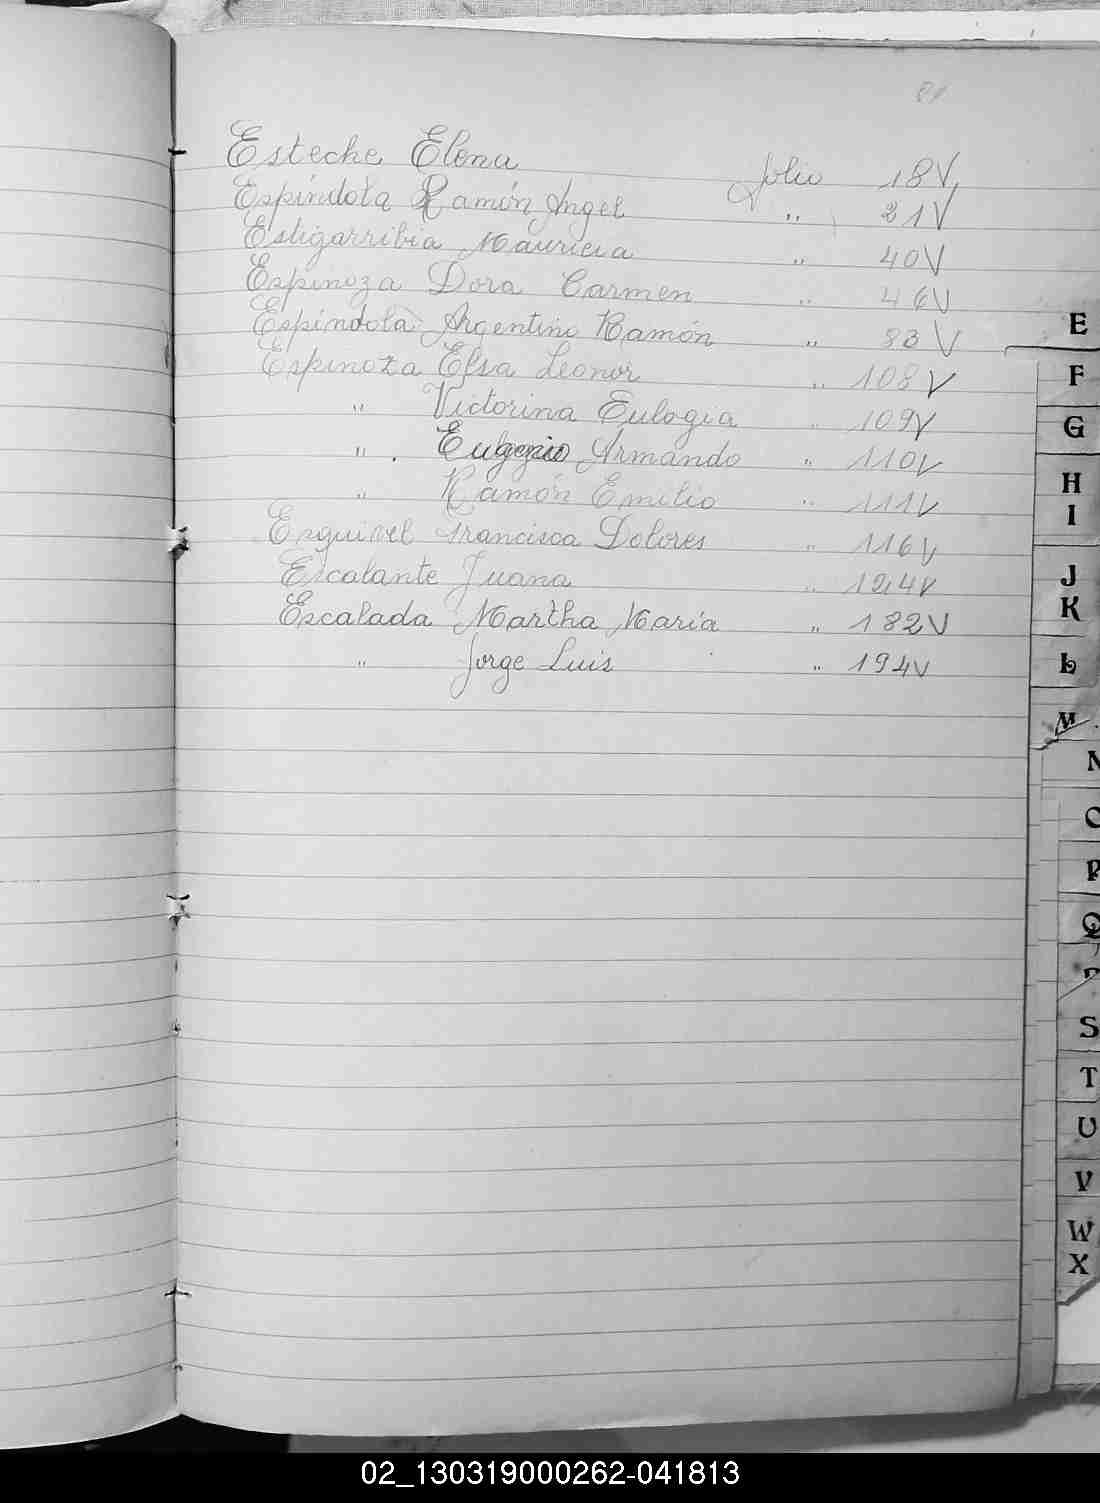 Esteche Elena folio 18V
Espíndola Ramón Angel " 21V
Estigarribia Mauricia " 40V
Espinoza Dora Carmen " 46V
Espíndola Argentino Ramón " 83V
Espinoza Elsa Leonor " 108V
" Victorina Eulogia " 109V
" . Eugenio Armando " 110V
" Ramón Emilio " 111V
Esquivel Francisca Dolores " 116V
Escalante Juana " 124V
Escalada Martha María " 182V
" Jorge Luis " 194V
E
F
G
H
I
J
K
L
M
N
O
P
Q
S
T
U
V
W
X
02_130319000262-041813